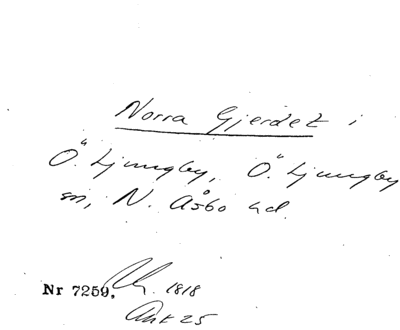 Norra Gjerdet i
Ö. Ljungby, Ö. Ljungby
sn, N. Åsbo hd.
Nr 7259. 1818
Ank 25